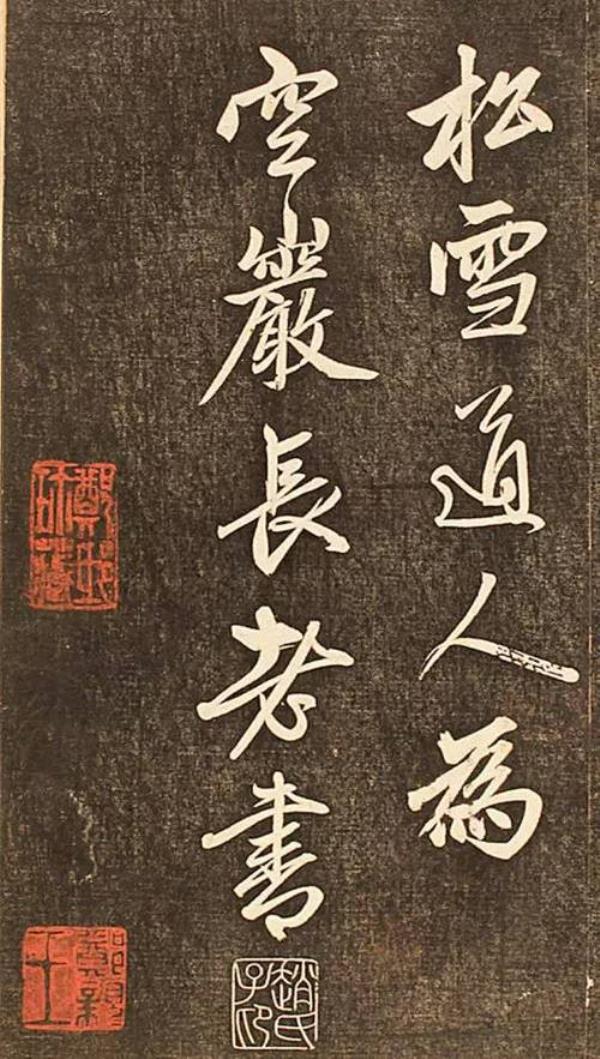 松雪道人為
空巖長老書
趙氏子印